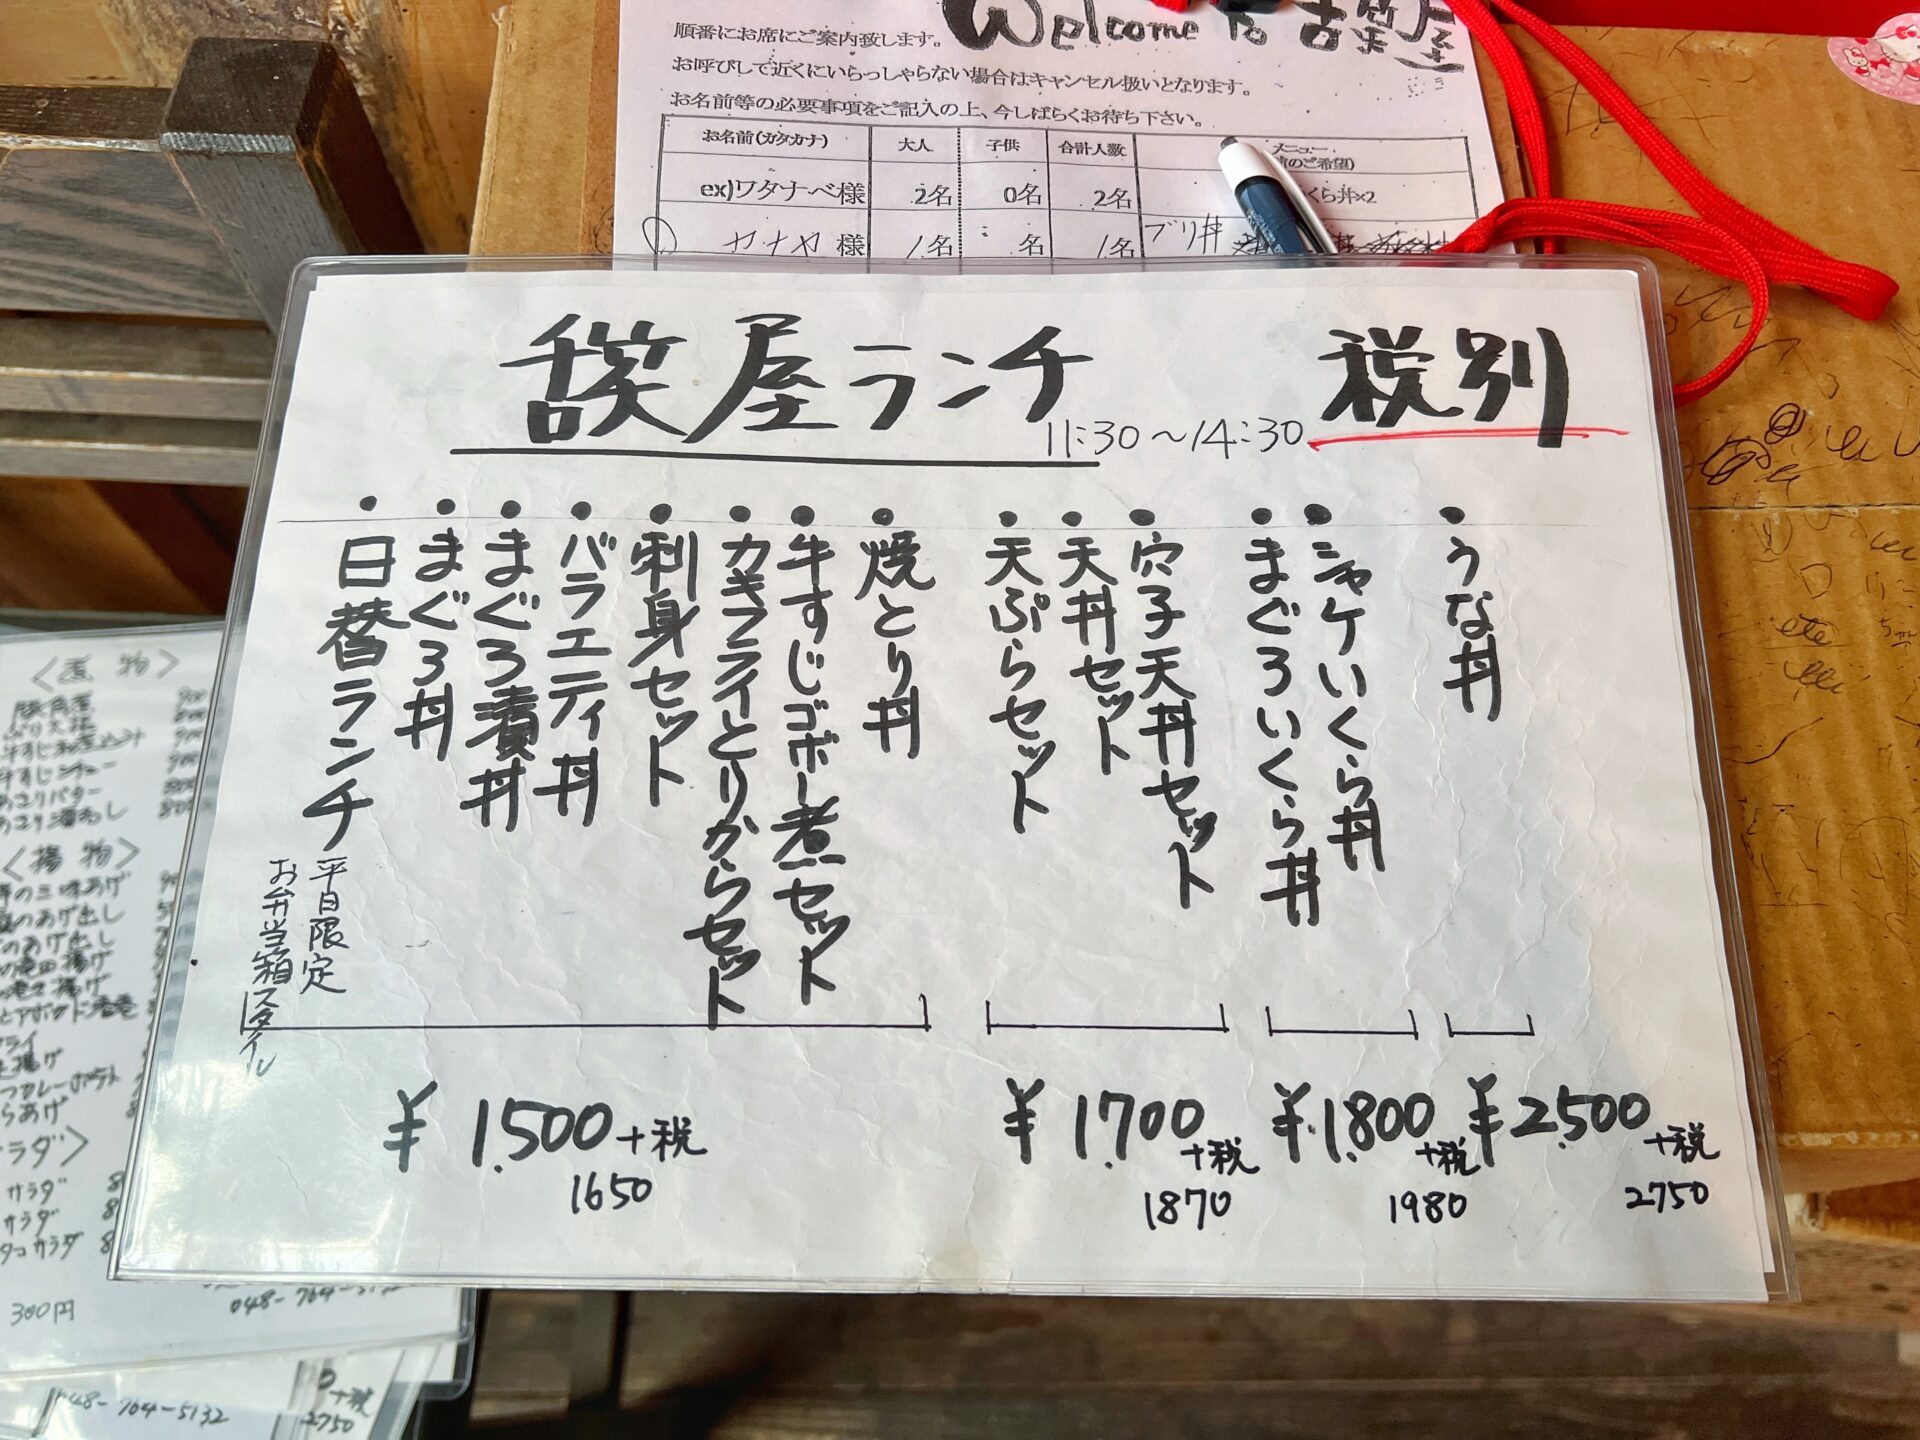 Welcome to
順番にお席にご案内致します。
お呼びして近くにいらっしゃらない場合はキャンセル扱いとなります。
お名前等の必要事項をご記入の上、今しばらくお待ち下さい。
お名前(カタカナ) 大人 子供 合計人数 メニュー
のご希望)
ex)ワタナベ様 2名 0名 2名 くら丼×2
様 1名 名 1名 ブリ丼
屋ランチ
11:30〜14:30
税別
・うな丼
・シャケいくら丼
・まぐろいくら丼
・穴子天丼セット
・天丼セット
・天ぷらセット
・焼とり丼
・牛すじゴボー煮セット
・カキフライとりからセット
・刺身セット
・バラエティ丼
・まぐろ漬丼
・まぐろ丼
・日替ランチ
平日限定
お弁当箱スタイル
¥1,500+税
1650
¥1,700+税
1870
¥1,800+税
1980
¥2,500+税
2750
<煮物>
<揚物>
の三味あげ
のあげ出し
のあげ出し
揚げ
揚げ
フライ
揚げ
らあげ
ラダ>
サラダ
サラダ
タコサラダ
300円
048-764-5132
48-764-5132
+税
2750